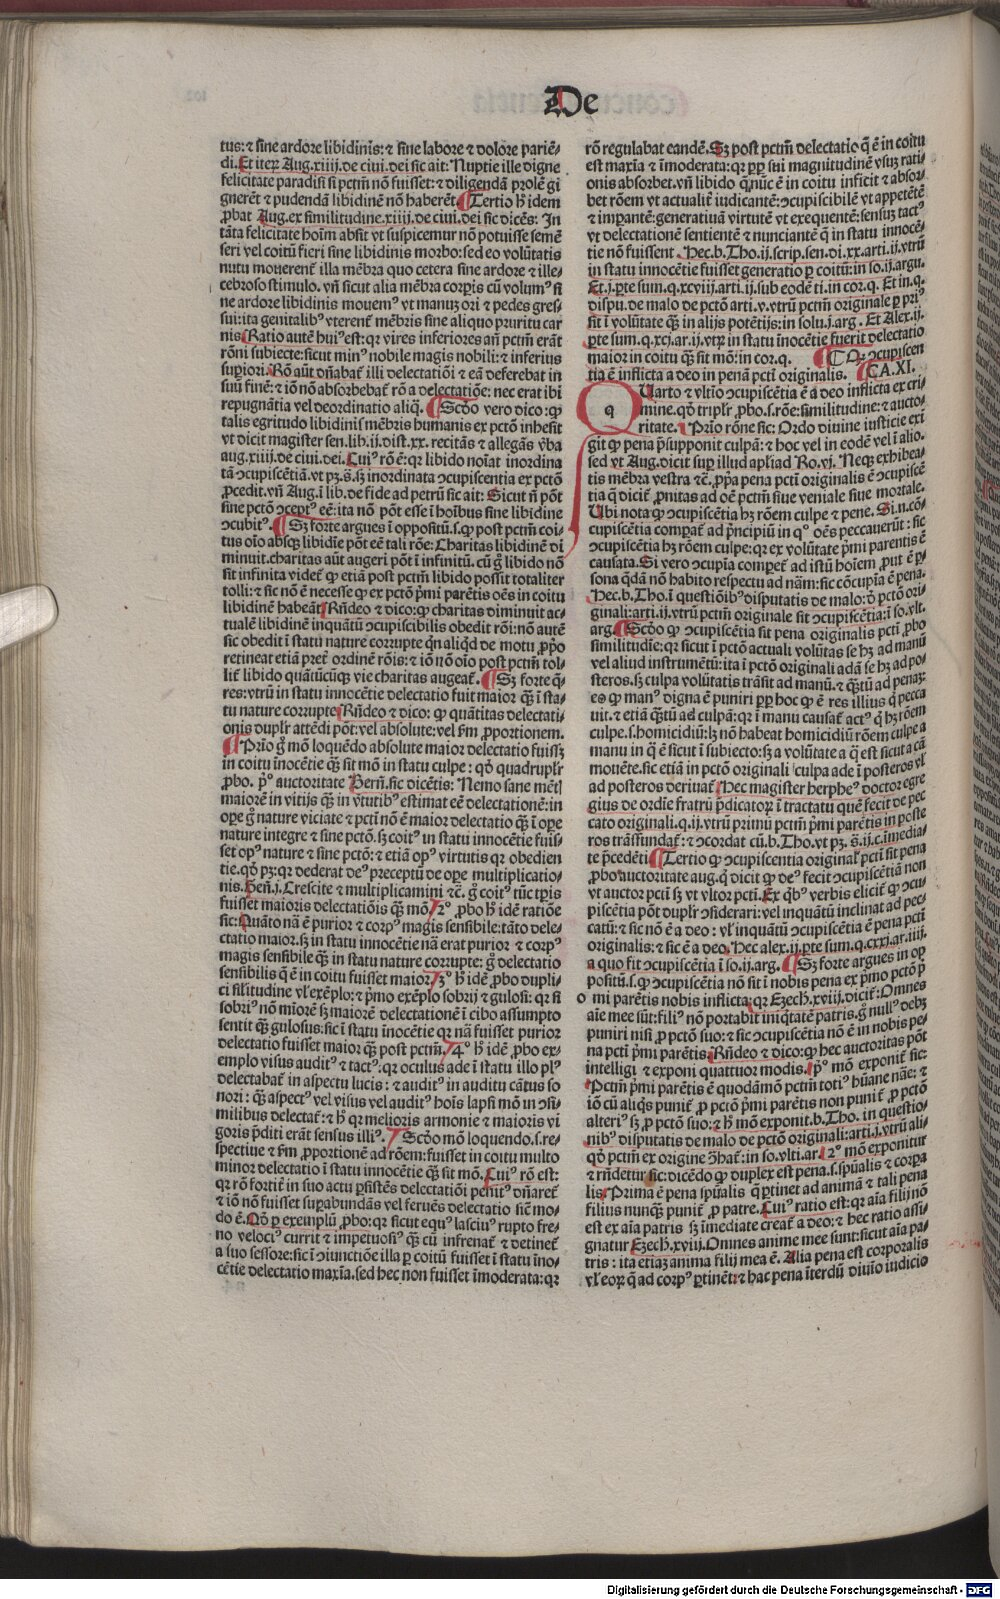 De
tus: ⁊ sine ardore libidinis: ⁊ sine labore ⁊ dolore pariē-
di. Et iteꝝ Aug. xiiii. de ciui. dei sic ait: Nuptie ille digne
felicitate paradisi si pctm̄ nō fuisset: ⁊ diligendā prolē gi
gnerēt ⁊ pudendā libidinē nō haberēt. Tertio hͦ idem
ꝓbat Aug. ex similitudine. xiiii. de ciui. dei sic dicēs: In
tāta felicitate hoīm absit vt suspicemur nō potuisse semē
seri vel coitū fieri sine libidinis morbo: sed eo volūtatis
nutu mouerent᷑ illa mēbra quo cetera sine ardore ⁊ ille-
cebroso stimulo. vn̄ sicut alia mēbra corpꝛis cū volumꝰ si
ne ardore libidinis mouemꝰ vt manus ori ⁊ pedes gres-
sui: ita genitalibꝰ vterent᷑ mēbris sine aliquo pruritu car
nis. Ratio autē huiꝰ est: qꝛ vires inferiores an̄ pctm̄ erāt
rōni subiecte: sicut minꝰ nobile magis nobili: ⁊ inferius
supiori. Rō aūt dn̄abat᷑ illi delectatiōi ⁊ eā deferebat in
suū finē: ⁊ iō nō absorbebat᷑ rō a delectatiōe: nec erat ibi
repugnātia vel deordinatio aliq̄. Scd̓o vero dico: ꝙ
talis egritudo libidinis mēbris humanis ex pctō inhesit
vt dicit magister sen. lib. ii. dist. xx. recitās ⁊ allegās v̓ba
aug. xiiii. de ciui. dei. Cuiꝰ rō ē: qꝛ libido noīat inordina
tā ↄcupiscētiā. vt pꝫ. s̄. sꝫ inordinata ↄcupiscentia ex pctō
ꝓcedit. vn̄ Aug. ī lib. de fide ad petrū sic ait: Sicut n̄ pōt
sine pctō ↄceptꝰ eē: ita nō pōt esse ī hoībus sine libidine
ↄcubitꝰ. Sꝫ forte argues ī oppositū. s. ꝙ post pctm̄ coi-
tus oīo absqꝫ libidīe pōt eē tali rōe: Charitas libidinē di
minuit. charitas aūt augeri pōt ī infinitū. cū g̊ libido nō
sit infinita videt᷑ ꝙ etiā post pctm̄ libido possit totaliter
tolli: ⁊ sic nō ē necesse ꝙ ex pctō p̓mi parētis oēs in coitu
libidinē habeāt. Rn̄deo ⁊ dico: ꝙ charitas diminuit ac-
tualē libidinē inquātū ↄcupiscibilis obedit rōi: nō autē
sic obedit ī statu nature corrupte qn̄ aliqd̓ de motu ꝓp̓o
retineat etiā pret᷑ ordinē rōis: ⁊ iō nō oīo post pctm̄ tol-
lit᷑ libido quātūcūqꝫ vie charitas augeat᷑. Sꝫ forte q̄-
res: vtrū in statu innocētie delectatio fuit maior q̄ꝫ ī sta-
tu nature corrupte. Rn̄deo ⁊ dico: ꝙ quātitas delectati-
onis dupl̓r attēdi pōt: vel absolute: vel ẜm ꝓportionem.
Pr̓io g̊ mō loquēdo absolute maior delectatio fuissꝫ
in coitu īnocētie q̄ꝫ sit mō in statu culpe: qd̓ quadrupl̓r
ꝓbo. pꝰ auctoritate Bern̄. sic dicētis: Nemo sane mētl̓
maiorē in vitijs q̄ꝫ in v̓tutibꝰ estimat eē delectationē: in
oꝑe g̊ nature viciate ⁊ pctī nō ē maior delectatio q̄ꝫ ī oꝑe
nature integre ⁊ sine pctō. sꝫ coitꝰ in statu innocētie fuis-
set opꝰ nature ⁊ sine pctō: ⁊ etiā opꝰ virtutis qꝛ obedien
tie. qd̓ pꝫ: qꝛ dederat deꝰ preceptū de oꝑe multiplicatio-
nis. Gen̄. j. Crescite ⁊ multiplicamini ⁊ cē. g̊ coitꝰ tūc tꝑis
fuisset maioris delectatiōis q̄ꝫ mō. 2ꝰ ꝓbo hͦ idē ratiōe
sic: Quāto nā ē purior ⁊ corpꝰ magis sensibile: tāto dele-
ctatio maior. sꝫ in statu innocētie nā erat purior ⁊ corpꝰ
magis sensibile q̄ꝫ in statu nature corrupte: g̊ delectatio
sensibilis q̄ ē in coitu fuisset maior. 3ꝰ hͦ idē ꝓbo dupli-
ci sil̓itudine vl̓ exēplo: ⁊ p̓mo exēplo sobrij ⁊ gulosi: qꝛ si
sobriꝰ nō miorē sꝫ maiorē delectationē ī cibo assumpto
sentit q̄ꝫ gulosus: sic ī statu īnocētie qꝛ nā fuisset purior
delectatio fuisset maior q̄ꝫ post pctm̄. 4ꝰ hͦ idē ꝓbo ex-
emplo visus auditꝰ ⁊ tactꝰ: qꝛ oculus ade ī statu illo plꝰ
delectabat᷑ in aspectu lucis: ⁊ auditꝰ in auditu cātus so
nori: q̄ꝫ aspectꝰ vel visus vel auditꝰ hoīs lapsi mō in ↄsi-
milibus delectat᷑: ⁊ hͦ qꝛ melioris armonie ⁊ maioris vi
goris p̓diti erāt sensus illiꝰ. Scd̓o mō loquendo. s. re-
spectiue ⁊ ẜm ꝓportionē ad rōem: fuisset in coitu multo
minor delectatio ī statu innocētie q̄ꝫ sit mō. Cuiꝰ rō est:
qꝛ rō fortit᷑ in suo actu ꝑsistēs delectatiōi penitꝰ dn̄aret᷑
⁊ iō nō fuisset supabundās vel feruēs delectatio sic̄ mo-
do ē. Qd̓ ꝑ exemplū ꝓbo: qꝛ sicut equꝰ lasciuꝰ rupto fre-
no velociꝰ currit ⁊ impetuosiꝰ q̄ꝫ cū infrenat᷑ ⁊ detinet᷑
a suo sessore: sic ī ↄiunctiōe illa ꝑ coitū fuisset ī statu īno-
cētie delectatio maxīa. sed hec non fuisset īmoderata: qꝛ
rō regulabat eandē. Sꝫ post pctm̄ delectatio q̄ ē in coitu
est maxīa ⁊ īmoderata: qꝛ ꝓpꝛ sui magnitudinē vsuꝫ rati-
onis absorbet. vn̄ libido q̄ nūc ē in coitu inficit ⁊ absor-
bet rōem vt actualit᷑ iudicantē: ↄcupiscibilē vt appetētē
⁊ imperantē: generatiuā virtutē vt exequentē: sensuꝫ tactꝰ
vt delectationē sentientē ⁊ nunciantē q̄ in statu innocē-
tie nō fuissent. Hec. b. Tho. ij. scrip. sen. di. xx. arti. ij. vtrū
in statu innocētie fuisset generatio ꝑ coitū: in so. ij. argu.
Et. j. ꝑte sum. q. xcviij. arti. ij. sub eodē ti. in cor. q. Et in. q.
dispu. de malo de pctō arti. v. vtrū pctm̄ originale ꝑ priꝰ
sit ī volūtate q̄ꝫ in alijs potētijs: in solu. j. arg. Et Alex. ij.
ꝑte sum. q. xcj. ar. ij. vtꝝ in statu īnocētie fuerit delectatio
maior in coitu q̄ꝫ sit mō: in cor. q. ¶ Qꝙ ↄcupiscen
tia ē inflicta a deo in penā pctī originalis. CA. XI.
Quarto ⁊ vltīo ↄcupiscētia ē a deo inflicta ex cri-
q mine. qd̓ tripl̓r ꝓbo. s. rōe: similitudine: ⁊ aucto-
ritate. Pr̓io rōne sic: Ordo diuine iusticie exi
git ꝙ pena p̓supponit culpā: ⁊ hoc vel in eodē vel ī alio.
sed vt Aug. dicit sup illud apl̓i ad Ro. vj. Neqꝫ exhibea-
tis mēbra vestra ⁊ cē. ꝓp̓a pena pctī originalis ē ↄcupiscē
tia q̄ dicit᷑ ꝓnitas ad oē pctm̄ siue veniale siue mortale.
Ubi nota ꝙ ↄcupiscētia hꝫ rōem culpe ⁊ pene. Si. n. cō-
cupiscētia compat᷑ ad p̓ncipiū in qͦ oēs peccauerūt: sic
ↄcupiscētia hꝫ rōem culpe: qꝛ ex volūtate p̓mi parentis ē
causata. Si vero ↄcupīa compet᷑ ad istū hoīem ꝓut ē ꝑ-
sona qd̓ā nō habito respectu ad nām: sic cōcupīa ē pena.
Hec. b. Tho. ī questiōibꝰ disputatis de malo: d̓ pctō ori-
ginali: arti. ij. vtrū pctm̄ originale sit ↄcupiscētia: ī so. vlt.
arg. Scd̓o ꝙ ↄcupiscētia sit pena originalis pctī ꝓbo
similitudīe: qꝛ sicut ī pctō actuali volūtas se hꝫ ad manū
vel aliud instrumētū: ita ī pctō originali adā se hꝫ ad po-
steros. sꝫ culpa volūtatis trāsit ad manū. ⁊ q̄ꝫtū ad penaꝫ:
es ꝙ manꝰ digna ē puniri ꝓpꝛ hoc ꝙ ē res illius q̄ pecca
uit. ⁊ etiā q̄ꝫtū ad culpā: qꝛ ī manu causat᷑ actꝰ q̄ hꝫ rōem
culpe. s. homicidiū: lꝫ nō habeat homicidiū rōem culpe a
manu in q̄ ē sicut ī subiecto: sꝫ a volūtate a q̄ est sicut a cā
mouēte. sic etiā in pctō originali culpa ade ī posteros vl̓
ad posteros deriuat᷑. Hec magister herpheꝰ doctor egre
gius de ordīe fratrū p̓dicatoꝝ ī tractatu quē fecit de pec
cato originali. q. ij. vtrū primū pctm̄ p̓mi parētis in poste
ros trāsfundat᷑: ⁊ ↄcordat cū. b. Tho. vt pꝫ. s̄. ij. c. īmedia-
te p̄cedēti. Tertio ꝙ ↄcupiscentia original̓ pctī sit pena
ꝓbo auctoritate aug. q̄ dicit ꝙ deꝰ fecit ↄcupiscētiā non
vt auctor pctī sꝫ vt vltor pctī. Ex qb̓ꝰ verbis elicit᷑ ꝙ ↄcu
piscētia pōt dupl̓r ↄsiderari: vel inquātū inclinat ad pec-
catū: ⁊ sic nō ē a deo: vl̓ inquātū ↄcupiscētia ē pena pctī
originalis: ⁊ sic ē a deo. Hec alex. ij. ꝑte sum. q. cxxj. ar. iiij.
a quo fit ↄcupiscētia ī so. ij. arg. Sꝫ forte argues in op
positū. s. ꝙ ↄcupiscētia nō sit ī nobis pena ex p̓mo pctō p̓
o mi parētis nobis inflicta: qꝛ Ezech. xviij. dicit᷑: Omnes
aīe mee sūt: filiꝰ nō portabit iniq̓tatē patris. g̊ nullꝰ debꝫ
puniri nisi ꝓ pctō suo: ⁊ sic ↄcupiscētia nō ē in nobis pe-
na pctī p̓mi parētis. Rn̄deo ⁊ dico: ꝙ hec auctoritas pōt
intelligi ⁊ exponi quattuor modis. pꝰ mō exponit᷑ sic:
Pctm̄ p̓mi parētis ē quodāmō pctm̄ totiꝰ hūane nāe: ⁊
iō cū aliqs̓ punit᷑ ꝓ pctō p̓mi parētis non punit᷑ ꝓ pctō
alteriꝰ sꝫ ꝓ pctō suo: ⁊ hͦ mō exponit. b. Tho. in questio-
nibꝰ disputatis de malo de pctō originali: arti. j. vtrū ali-
qd̓ pctm̄ ex origine ↄ̄hat᷑: in so. vlti. ar. 2ꝰ mō exponitur
⁊ rn̄detur sic: dicēdo ꝙ duplex est pena. s. spūalis ⁊ corpa
lis. Prima ē pena spūalis q̄ ꝑtinet ad animā ⁊ tali pena
filius nunqꝫ punit᷑ ꝓ patre. Cuiꝰ ratio est: qꝛ aīa filij nō
est ex aīa patris sꝫ īmediate creat᷑ a deo: ⁊ hec ratio assi-
gnatur Ezech. xviij. Omnes anime mee sunt: sicut aīa pa-
tris: ita etiaꝫ anima filij mea ē. Alia pena est corporalis
vl̓ eoꝝ q̄ ad corpꝰ ꝑtinēt: ⁊ hac pena īterdū diuīo iudicio
Digitalisierung gefördert durch die Deutsche Forschungsgemeinschaft - DFG